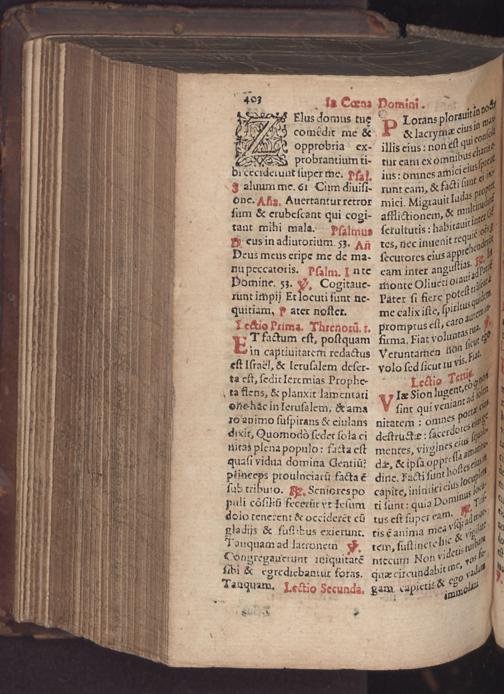 403
In Cœna Domini.
ZElus domus tuę
comêdit me &
opprobria ex-
probrantium ti-
bi ceciderunt super me. Psal.
Saluum me. 61 Cum diuisi-
one. Aña. Auertantur retror
sum & erubescant qui cogi-
tant mihi mala. Psalmus
Deus in adiutorium 53. Añ
Deus meus eripe me de ma-
nu peccatoris. Psalm. In te
Domine. 53. ℣. Cogitaue-
runt impij Et locuti sunt ne-
quitiam, Pater noster.
Lectio Prima. Threnorū. 1.
ET factum est, postquam
in captiuitatem redactus
est Israël, & Ierusalem deser-
ta est, sedit Ieremias Prophe-
ta flens, & planxit lamentati
one hac in Ierusalem, & ama
ro animo suspirans & eiulans
dixit, Quomodò sedet sola ci
uitas plena populo: facta est
quasi vidua domina Gentiū?
princeps prouinciarū facta ē
sub tributo. ℟. Seniores po
puli cōsiliū fecerūt vt Iesum
dolo tenerent & occiderēt cū
gladijs & fustibus exierunt.
Tanquam ad latronem ℣.
Congregauerunt iniquitatē
sibi & egrediebantur foras.
Tanquam. Lectio Secunda.
PLorans plorauit in
& lacrymæ eius in
illis eius: non est qui
tur eam ex omnibus
ius: omnes amici eius
runt eam, & facti sunt ei
mici. Migrauit Iudas
afflictionem, &
seruitutis: habitauit inter
tes, nec inuenit requiē
secutores eius
eam inter angustias. ℟.
monte Oliueti oraui ad
Pater si fieri potest
me calix iste, spiritus
promptus est, caro autem
firma. Fiat voluntas tua.
Veruntamen non sicut ego
volo sed sicut tu vis. Fiat.
Lectio Tertia.
VIæ Sion lugent,
sint qui veniant ad
nitatem: omnes portæ eius
destructæ: sacerdotes
mentes, virgines eius
dæ, & ipsa oppressa
dine. Facti sunt hostes eius
capite, inimici eius
ti sunt: quia Dominus
tus est super eam. ℟.
tis ē anima mea vsq; ad
tem, sustinete hîc & vigilate
mecum Non videtis
quæ circundabit me, vos
gam capietis & ego vadam
immolari